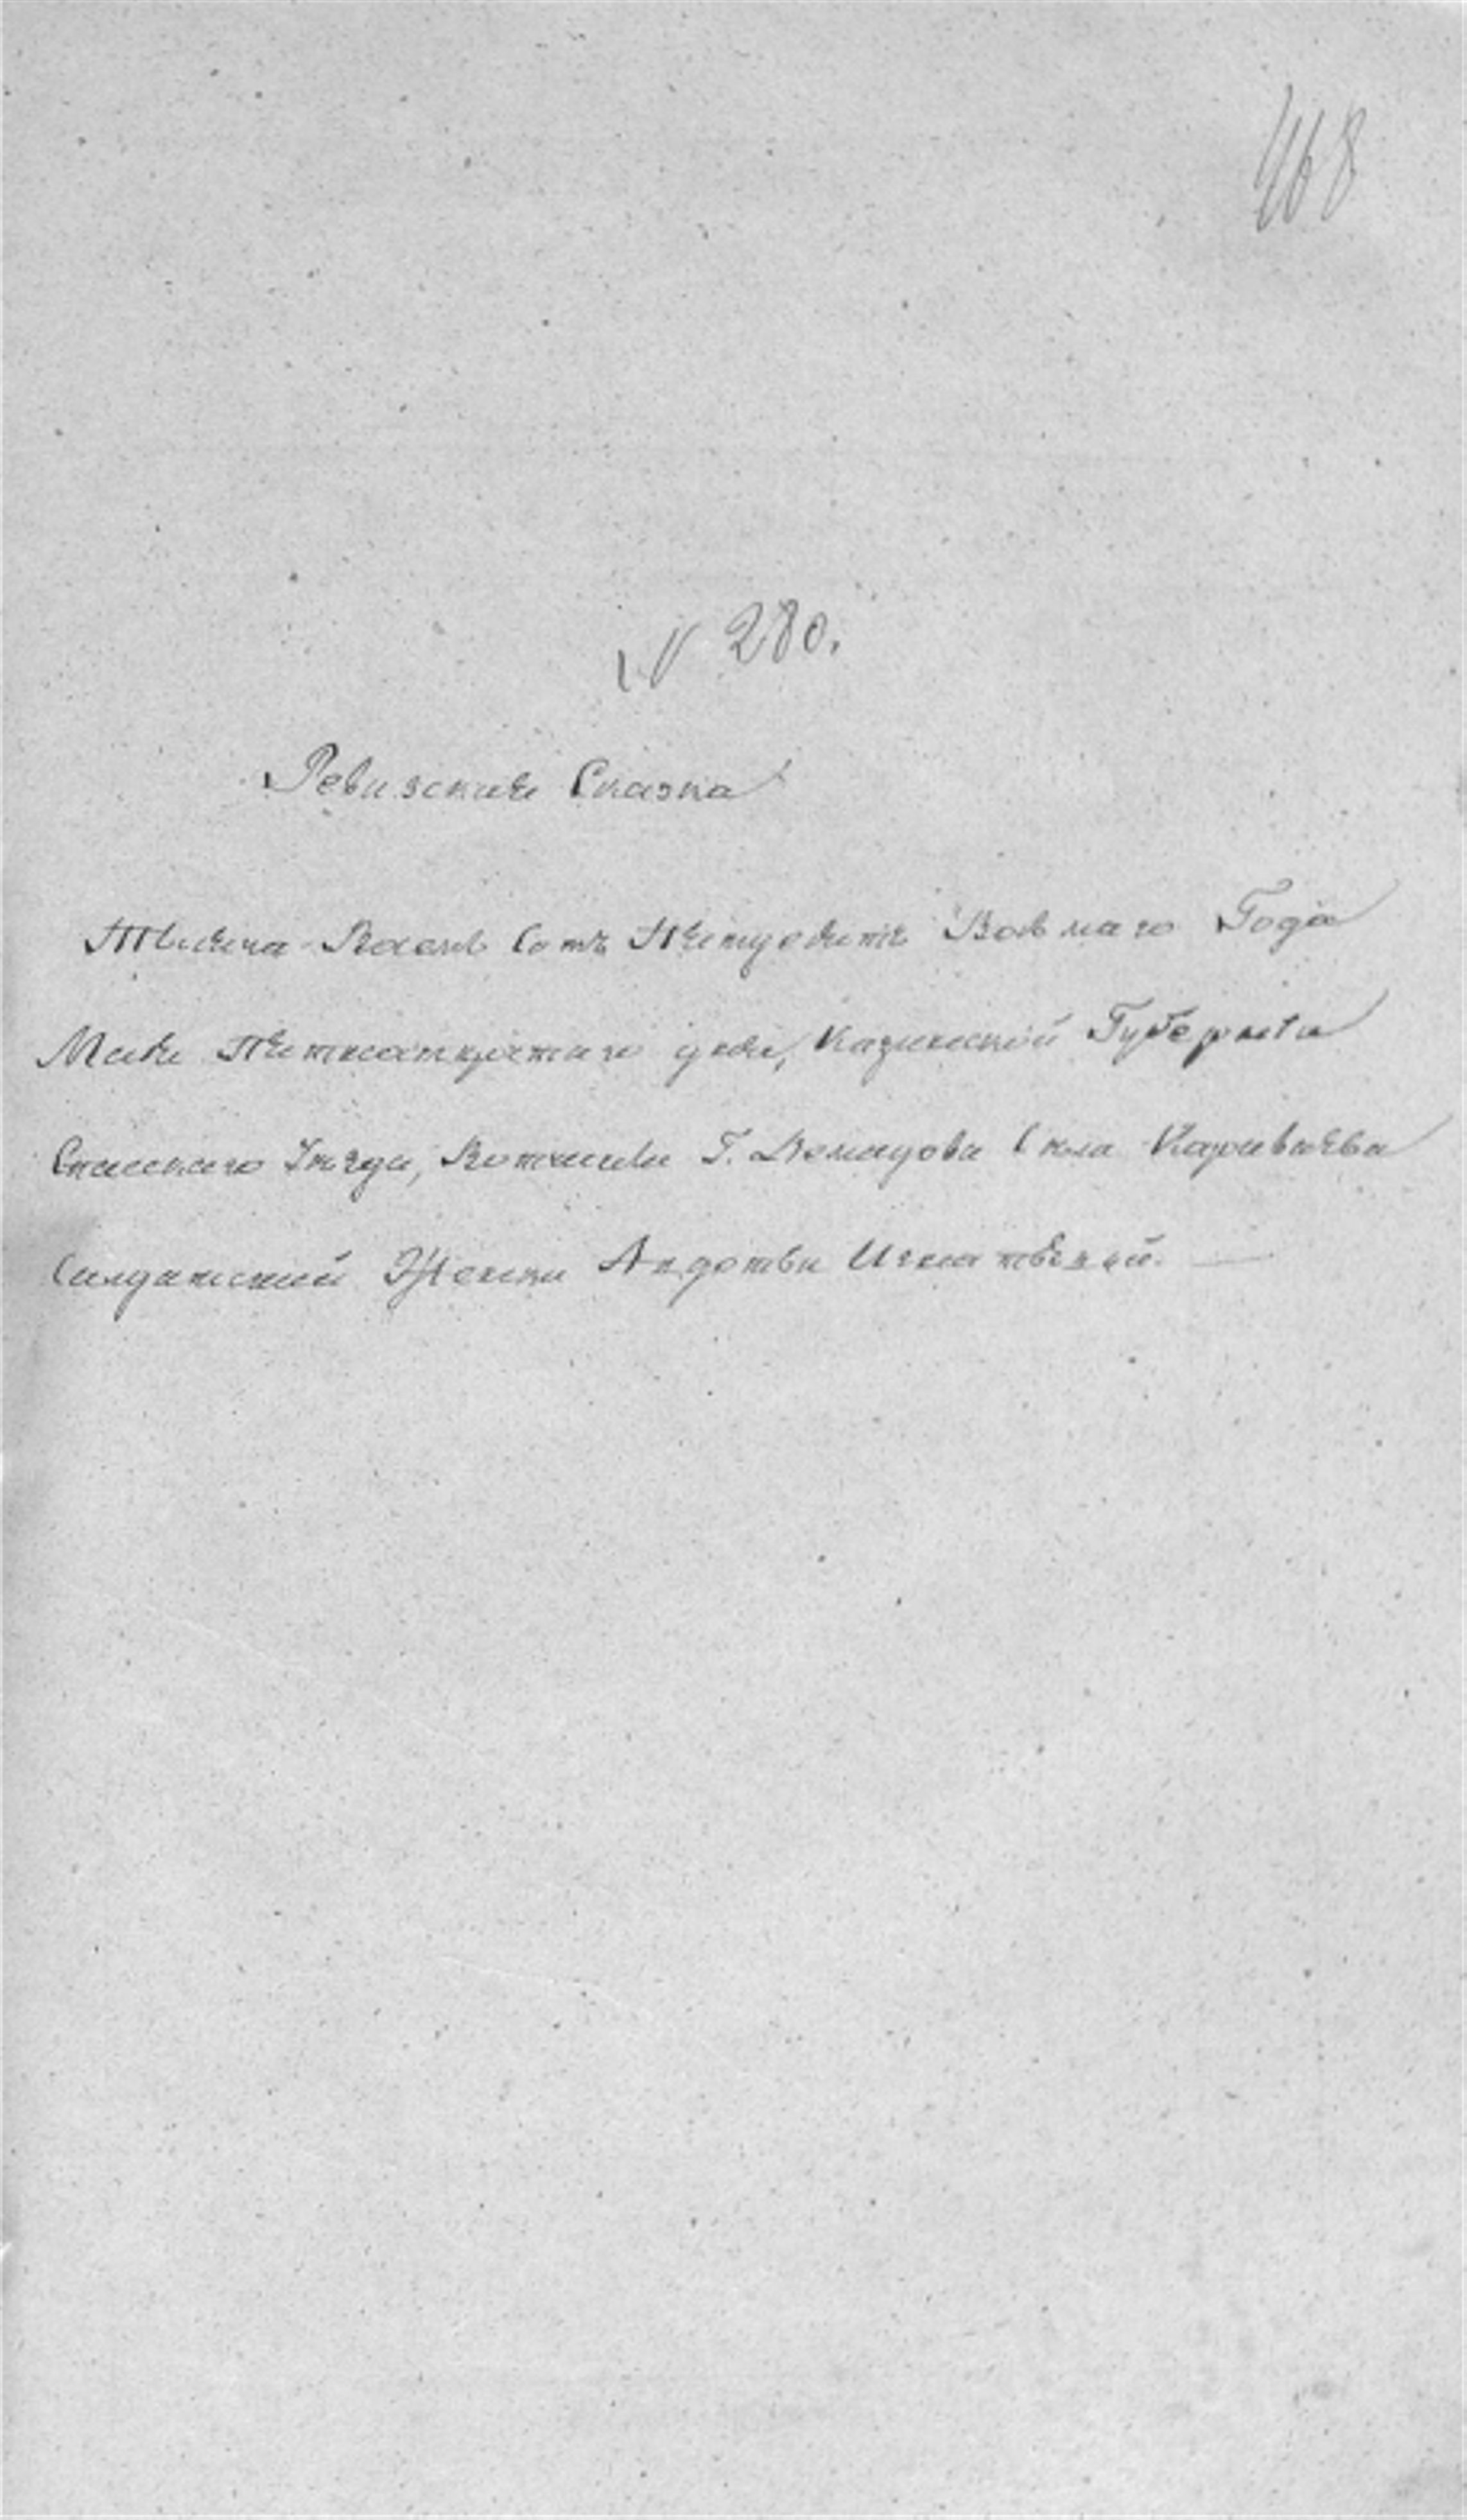 468
N 280.
Ревизская Сказка
Тысеча Восемь Сотъ Пятьдесятъ Восмаго Года
Маія Пятнатцатаго дня, Казанской Губерніи
Спаскаго Уезда, Вотчины Г. Демидова Села Караваева
Салдатской Жонки Авдотьи Игнатьевой.